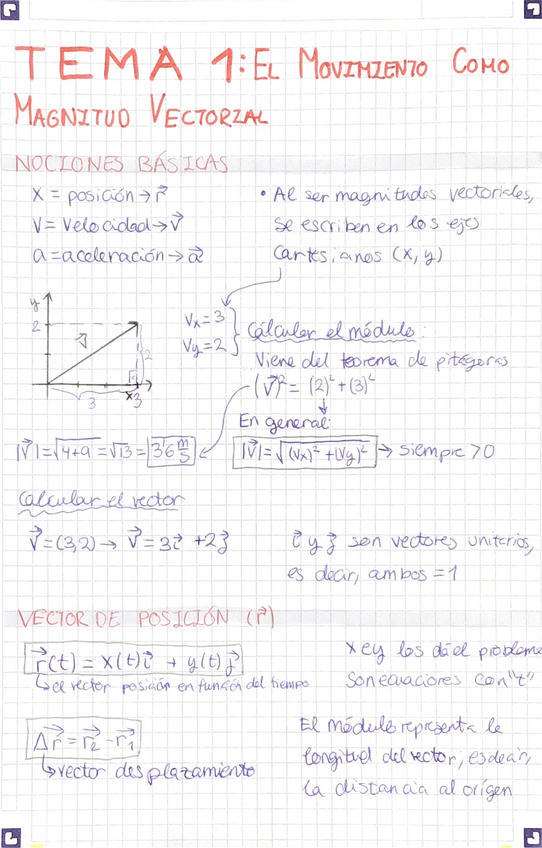 TEMA 1: EL MOVIMIENTO COMO
MAGNITUD VECTORIAL
NOCIONES BÁSICAS
X = posición → r⃗
V = Velocidad → v⃗
a = aceleración → a⃗
• Al ser magnitudes vectoriales,
se escriben en los ejes
cartesianos (x, y)
y
2
2
3
x
3
Vx = 3
Vy = 2
Cálcular el módulo:
Viene del teorema de pitágoras
(V⃗)² = (2)² + (3)²
En general:
|V⃗| = √(Vx)² + (Vy)² → siempre > 0
|V⃗| = √4+9 = √13 = 3'6 m/s
Calcular el vector
V⃗ = (3,2) → V⃗ = 3i⃗ + 2j⃗
i⃗ y j⃗ son vectores unitarios,
es decir, ambos = 1
VECTOR DE POSICIÓN (r⃗)
r⃗(t) = x(t)i⃗ + y(t)j⃗
↳ el vector posición en función del tiempo
x e y los dá el problema
son ecuaciones con "t"
Δr⃗ = r⃗2 - r⃗1
↳ vector desplazamiento
El módulo representa la
longitud del vector, es decir,
la distancia al orígen